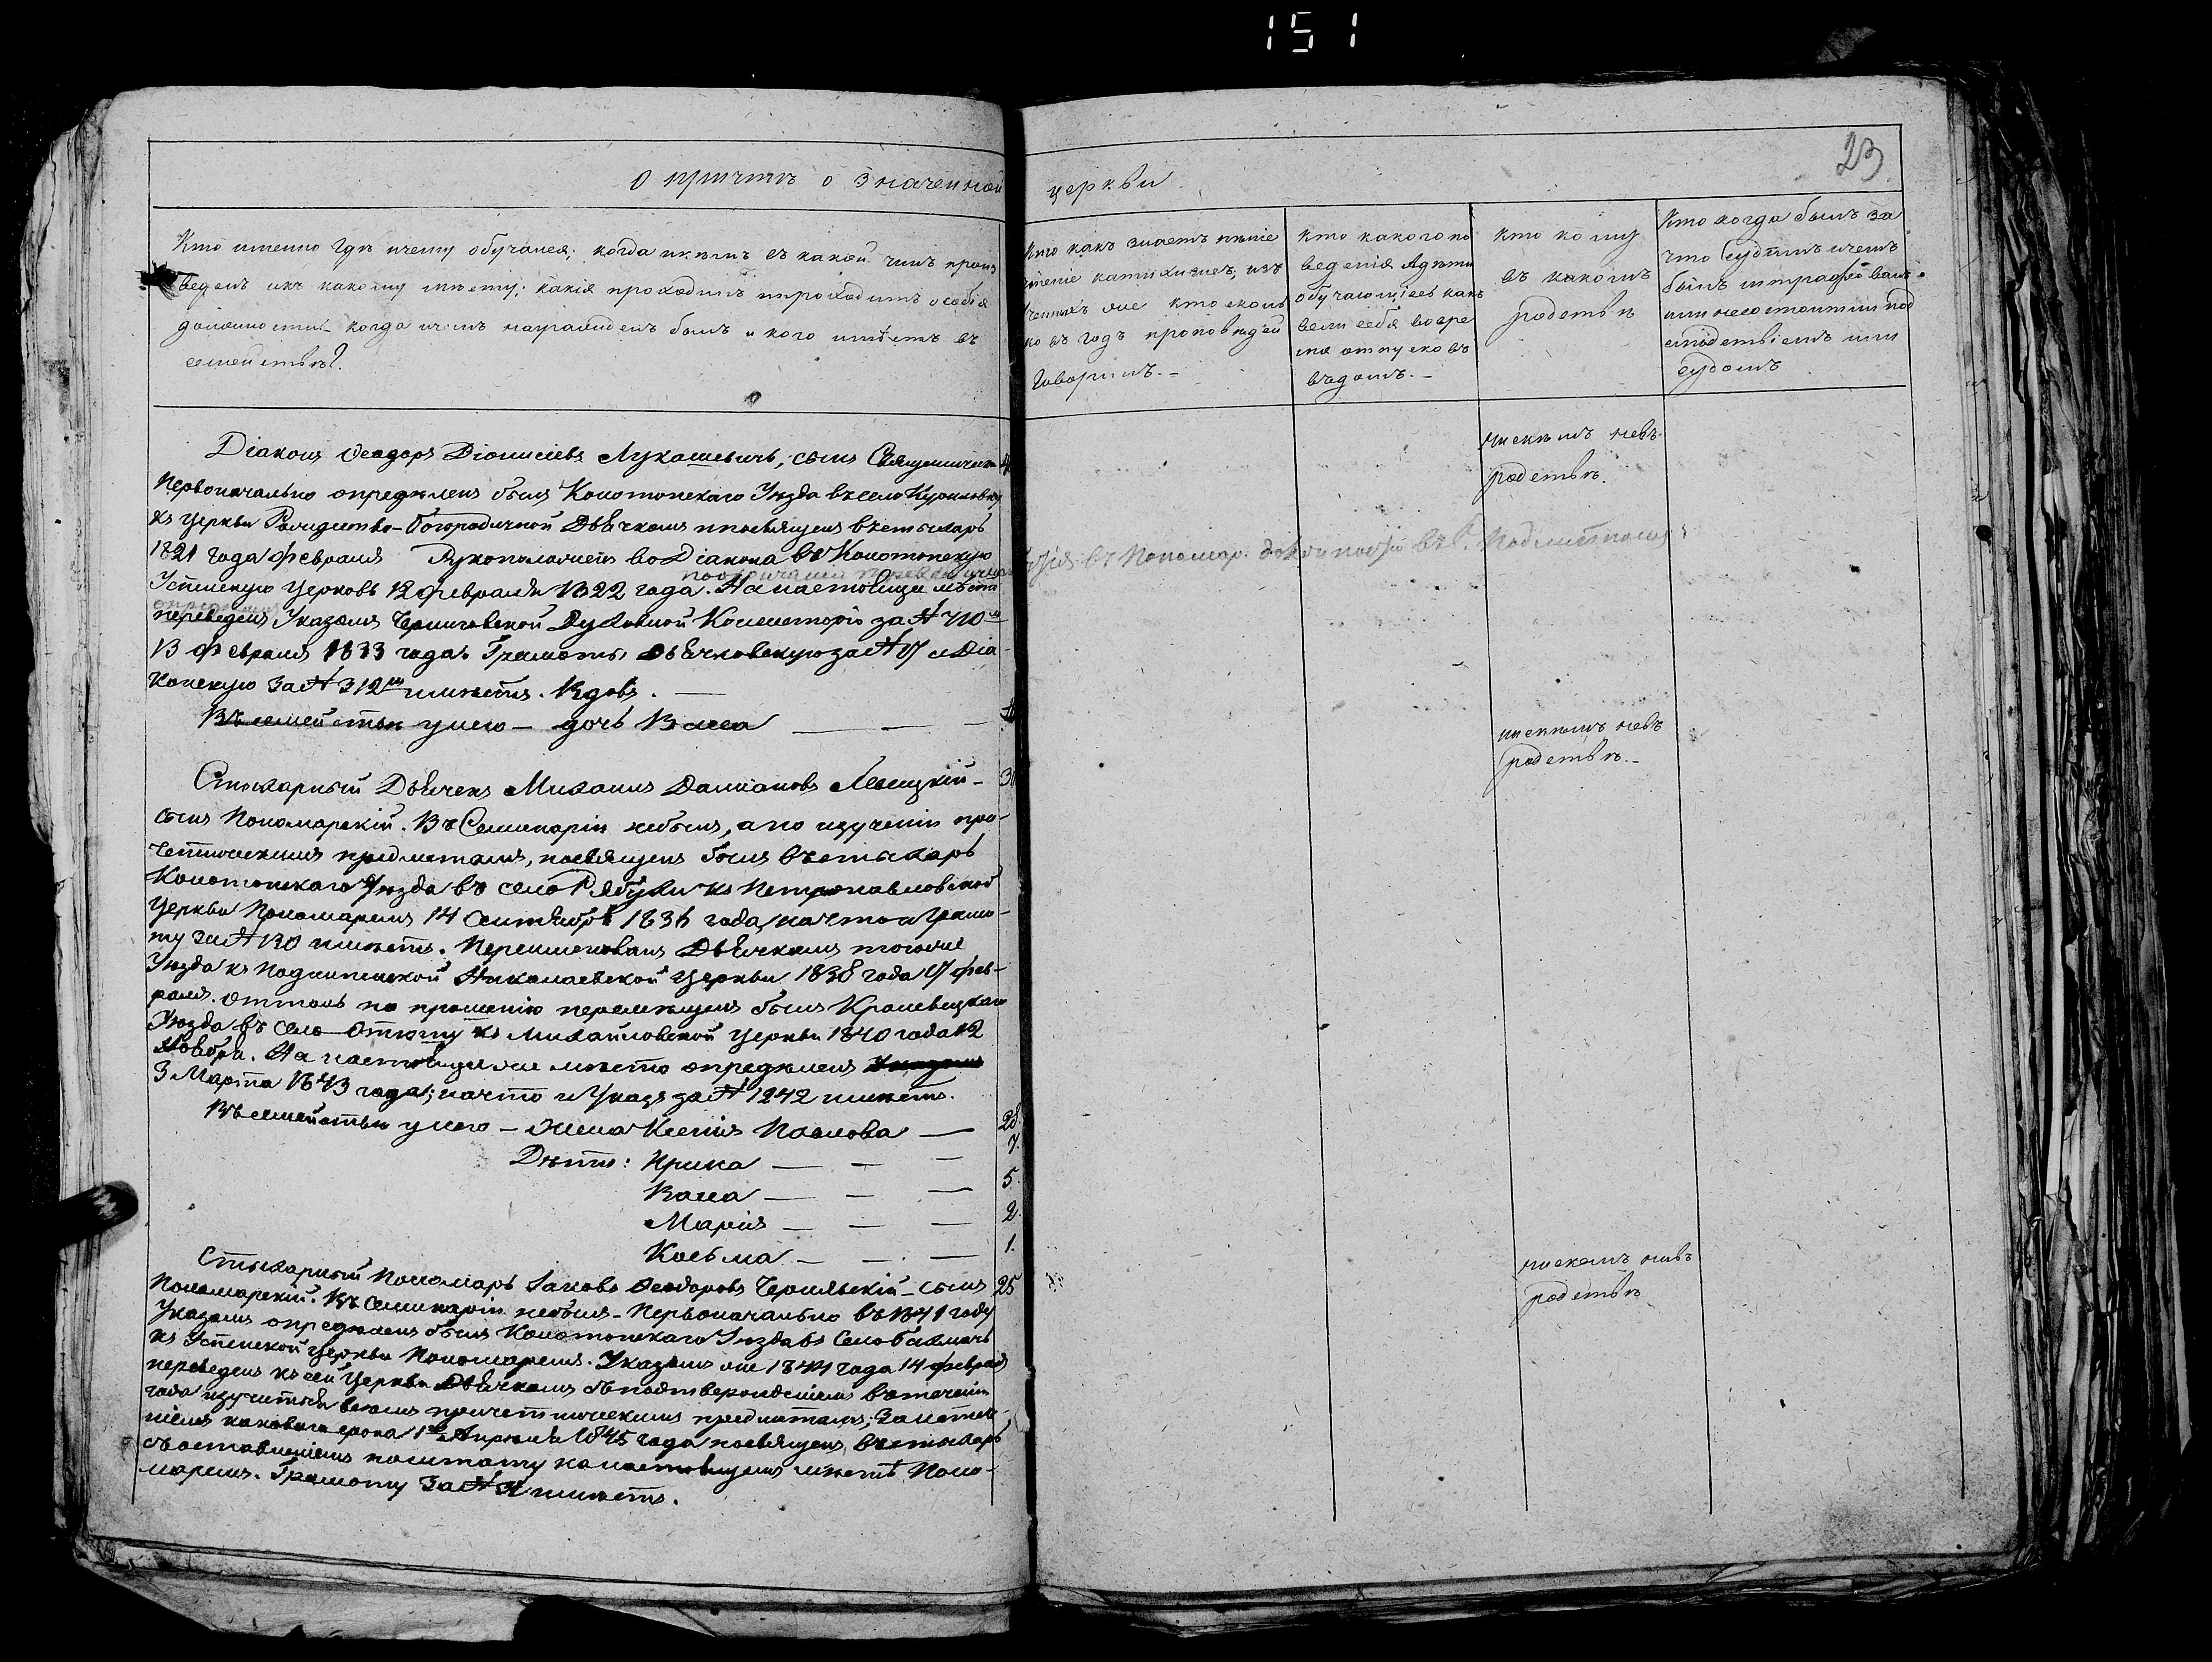 151
23
О причтѣ означенной церкви
Кто именно гдѣ и чему обучался; когда и кѣмъ въ какой чинъ произ
веденъ и къ какому мѣсту; какія проходилъ и проходитъ особыя
должности когда и чѣмъ награжденъ былъ и кого имѣетъ въ
семействѣ?
Кто какъ знаетъ пѣніе
чтеніе катихизисъ, изъ
ученныхъ же кто сколь
ко въ годъ проповѣдей
говоритъ. –
Кто какого по
веденія А дѣти
обучающіеся какъ
вели себя во вре
мя отпусковъ
въ домъ. –
Кто кому
въ какомъ
родствѣ
Кто когда былъ за
что судимъ и чемъ
былъ штрафованъ
или не состоитъ ли под
слѣдствіемъ или
судомъ
Діаконъ Феодоръ Діонисіевъ Лукашевичь, сынъ Священическій
Первоначально опредѣленъ былъ Конотопскаго Уѣзда въ село Куриловку
къ Церкви Рождество-Богородичной Дьячкомъ и посвященъ въ стихарь
1821 года февраля Рукоположенъ во Діакона въ Конотопскую
Успенскую Церковь 12 февраля 1822 года. На настоящее мѣсто
переведенъ Указомъ Черниговской Духовной Консисторіи за № 710м
13 февраля 1833 года. Грамоты Дьячковскую за № 17 и Діа-
конскую за № 312м имѣетъ. Вдовъ. –
Въ семействѣ у него – дочь Васса – – –
ни скѣмъ невъ
родствѣ.
въ Пономар. должность въ с.
Стихарный Дьячекъ Михаилъ Даміановъ Левицкій –
сынъ Пономарскій. Въ Семинаріи небылъ, а по изученіи при-
четническимъ предметамъ, посвященъ былъ въ стихарь
Конотопскаго Уѣзда въ село Рябухи къ Петропавловской
Церкви Пономаремъ 14 Сентября 1836 года, на что и Грамо-
ту за № 130 имѣетъ. Переименованъ Дьячкомъ тогоже
Уѣзда къ Подлипенской Николаевской Церкви 1838 года 17 фев-
раля. Оттоль по прошенію перемѣщенъ былъ Кролевецкаго
Уѣзда въ село Атюшу къ Михайловской Церкви 1840 года 12
Ноября. На настоящее же мѣсто опредѣленъ
3 Марта 1843 года; на что и Указъ за № 1242 имѣетъ.
Въ семействѣ у него – жена Ксенія Павлова – 28.
Дѣти: Ирина – – – 7.
Васса – – – 5.
Марія – – – 2.
Косьма – – – 1.
ни скѣмъ невъ
родствѣ. –
Стихарный Пономарь Іаковъ Феодоровъ Чернявскій – сынъ 25
Пономарскій. Въ Семинаріи небылъ – Первоначально въ 1841 году
Указомъ опредѣленъ былъ Конотопскаго Уѣзда въ село Бахмачь
къ Успенской Церкви Пономаремъ. Указомъ же 1844 года 14 февраля
переведенъ к сей Церкви Дьячкомъ съ подтвержденіемъ въ теченіи
года изучиться всѣмъ причетническимъ предметамъ; За истече-
ніемъ каковаго срока 1го Апрѣля 1845 года посвященъ въ стихарь
съ оставленіемъ по штату на настоящемъ мѣстѣ Поно-
маремъ. Грамоту за № 31 имѣетъ.
ни скемъ нивъ
родствѣ